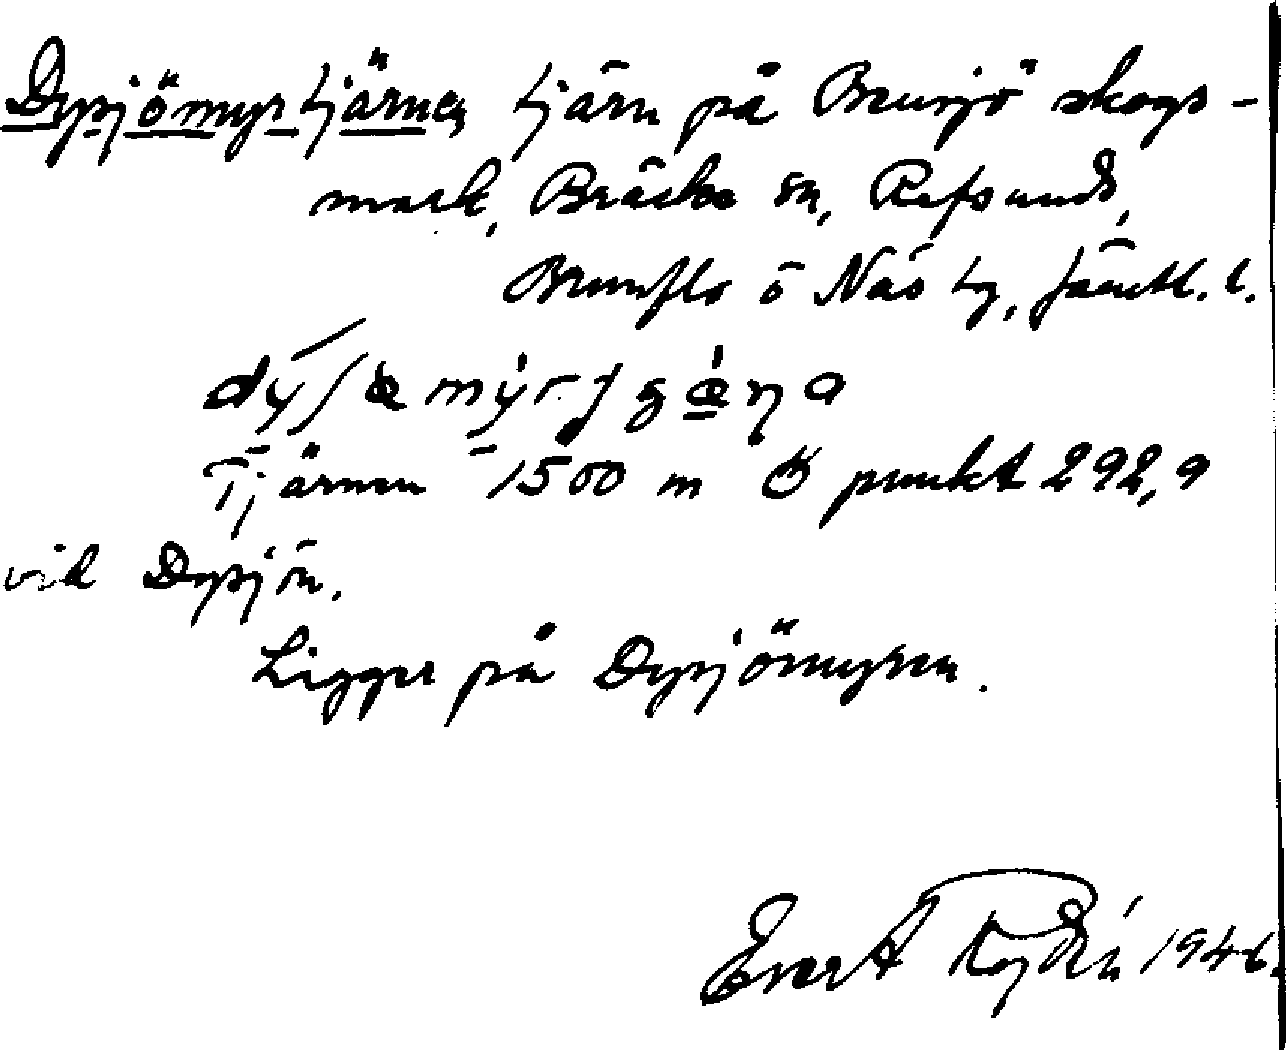 Dysjömyrtjärnen tjärn på Brunsjö skogs-
mark, Bräcke sn, Refsunds,
Brunflo o Näs tg, Jämtl. l.
Tjärnen 1500 m Ö punkt 292,9
vid Dysjön.
Ligger på Dysjömyren.
Evert 1946.